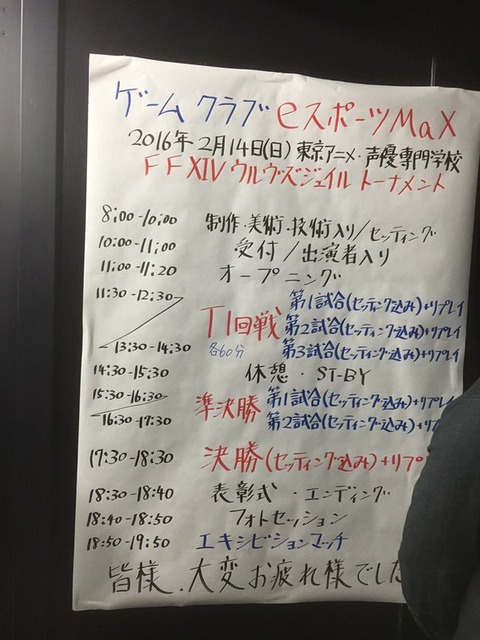 ゲームクラブeスポーツMaX
2016年2月14日(日)東京アニメ・声優専門学校
FFXIVウルヴズジェイルトーナメント
8:00-10:00 制作.美術.技術入り/セッティング
10:00-11:00 受付/出演者入り
11:00-11:20 オープニング
11:30-12:30 第1試合(セッティング込み)+リプレイ
T1回戦 第2試合(セッティング込み)+リプレイ
13:30-14:30 各60分 第3試合(セッティング込み)+リプレイ
14:30-15:30 休憩・ST-BY
15:30-16:30 準決勝 第1試合(セッティング込み)+リプレ
16:30-17:30 第2試合(セッティング込み)+リプ
17:30-18:30 決勝(セッティング込み)+リプ
18:30-18:40 表彰式・エンディング
18:40-18:50 フォトセッション
18:50-19:50 エキシビションマッチ
皆様.大変お疲れ様でした